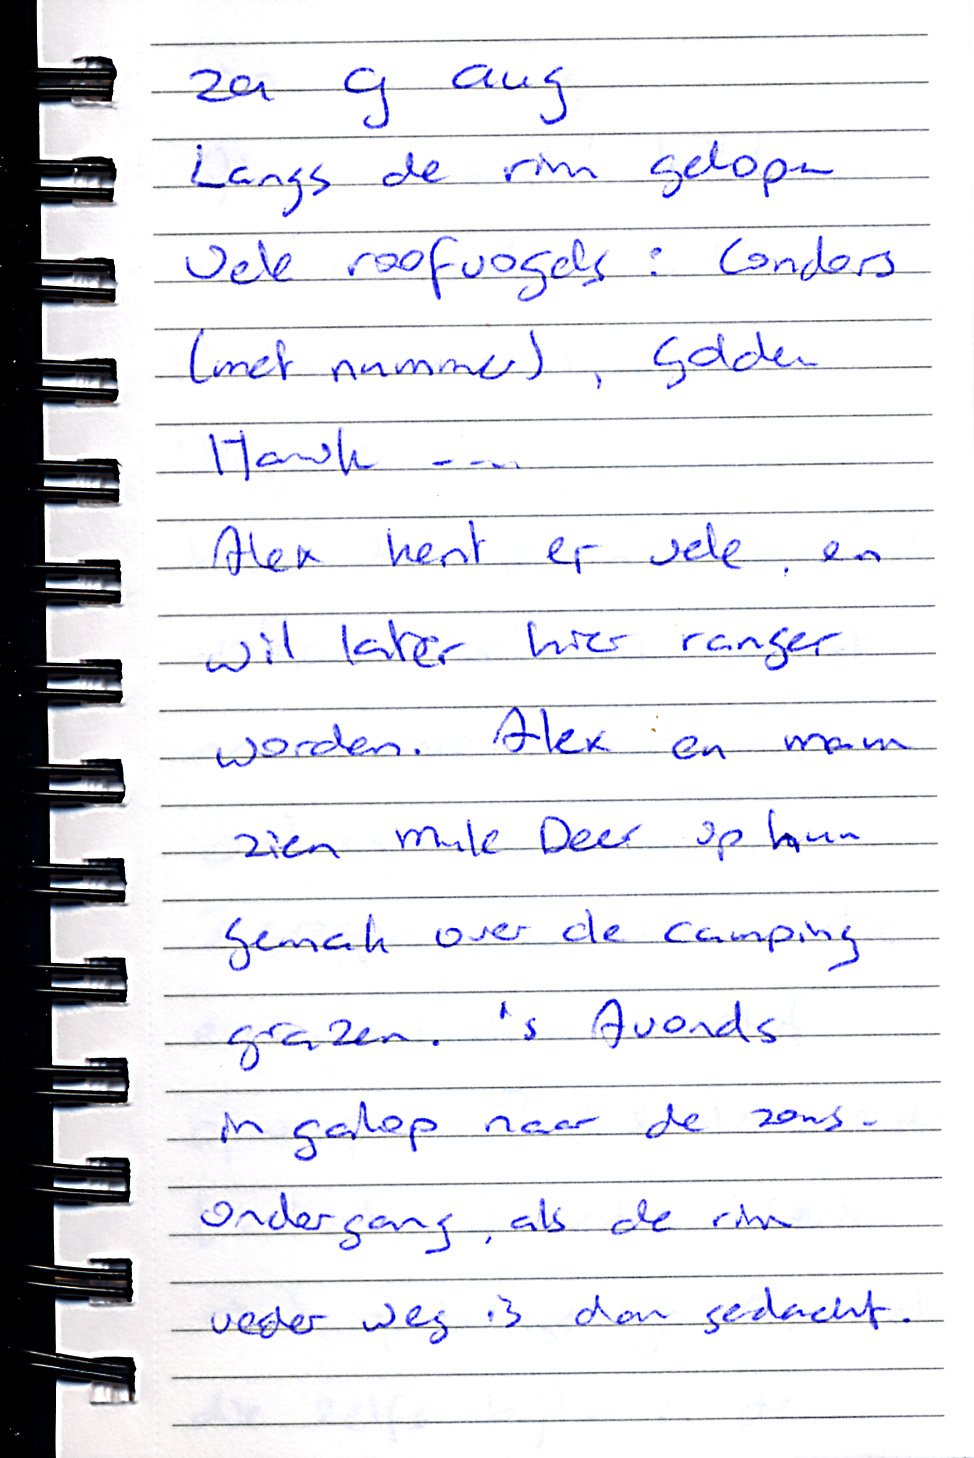 za 9 aug
Langs de rim gelopen
Vele roofvogels : Condors
(met nummer) , Golden
Hawk ----
Alex kent er vele , en
wil later hier ranger
worden. Alex en mam
zien Mule Deer op hun
gemak over de camping
grazen. 's Avonds
in galop naar de zons-
ondergang, als de rim
veder weg is dan gedacht.